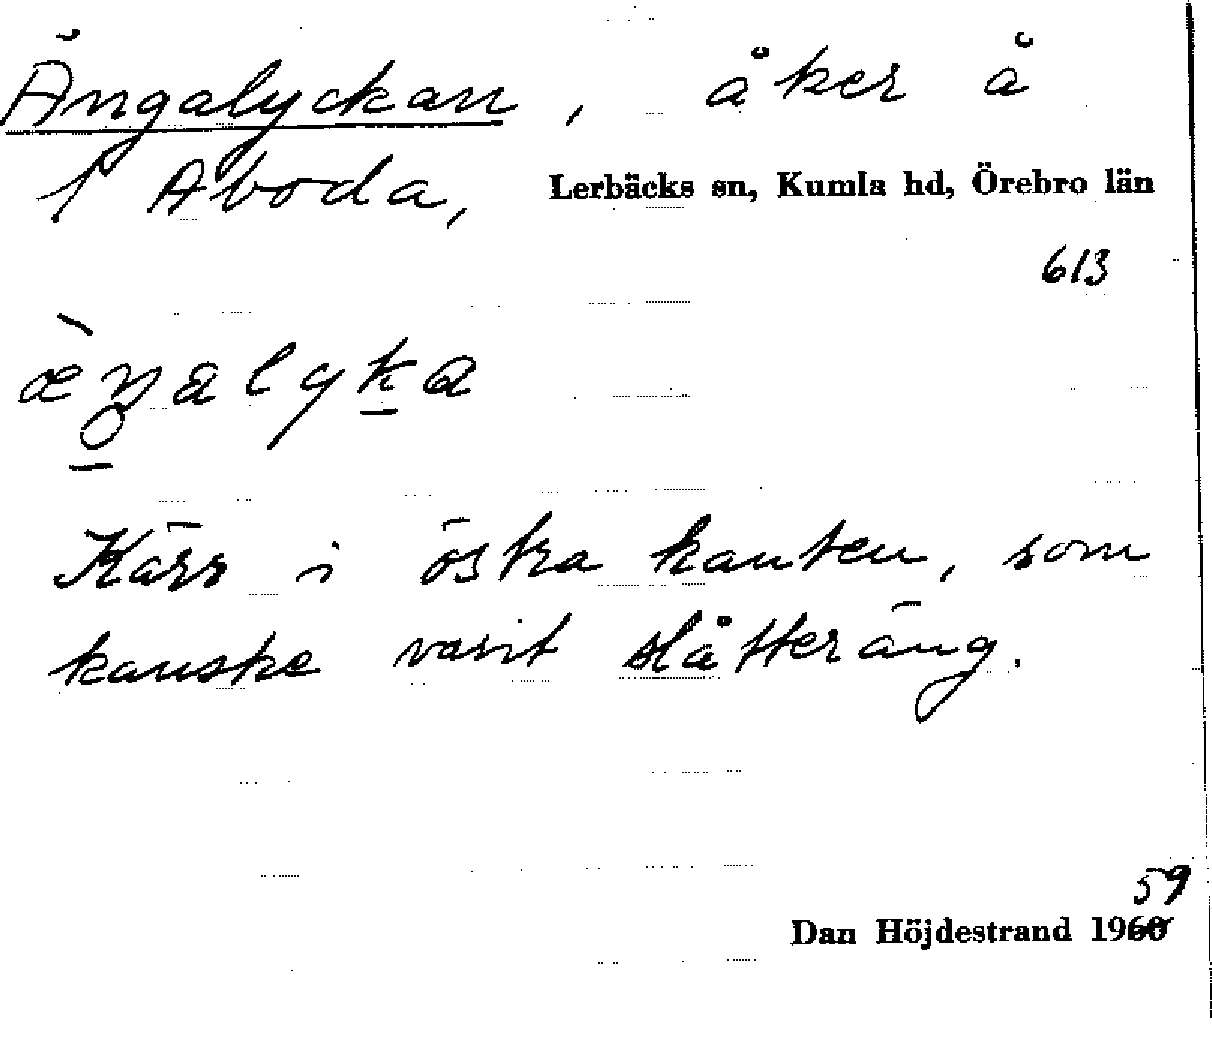 Ängalyckan, åker å
1 Aboda, Lerbäcks sn, Kumla hd, Örebro län
613
æ̀ŋalyka
Kärr i östra kanten, som
kanske varit slåtteräng.
59
Dan Höjdestrand 1960